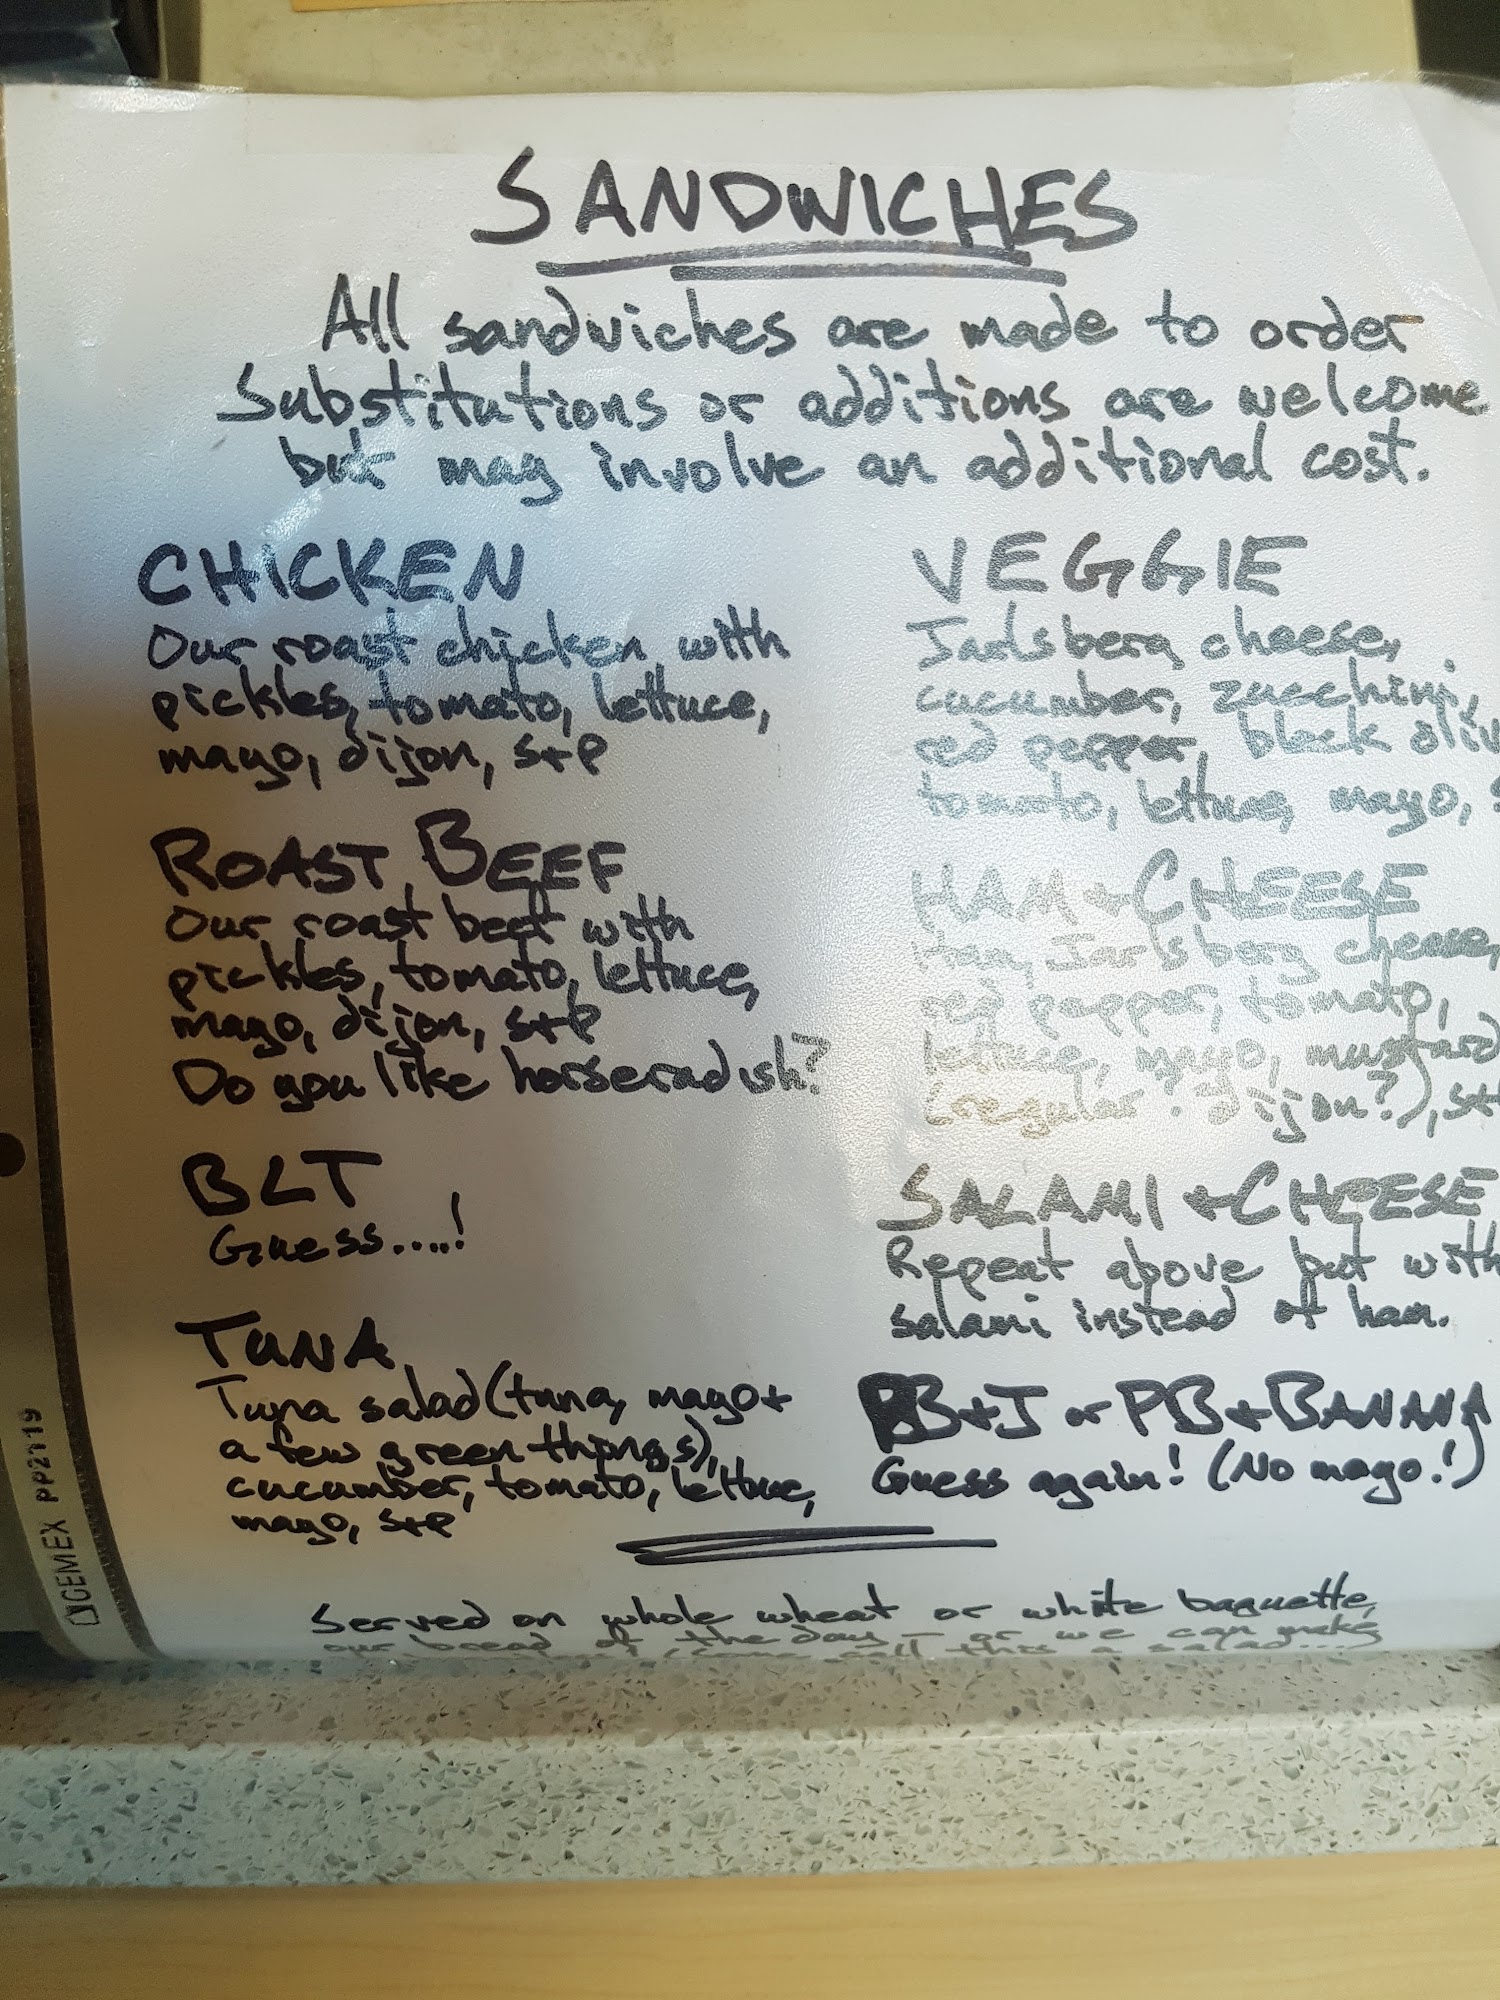 SANDWICHES
All sandwiches are made to order
Substitutions or additions are welcome
but may involve an additional cost.
CHICKEN
Our roast chicken with
pickles, tomato, lettuce,
mayo, dijon, S+P
ROAST BEEF
Our roast beef with
pickles, tomato, lettuce,
mayo, dijon, S+P
Do you like horseradish?
BLT
Guess....!
TUNA
Tuna salad (tuna, mayo +
a few green things),
cucumber, tomato, lettuce,
mayo, S+P
VEGGIE
Jarlsberg cheese,
cucumber, zucchini,
red pepper, black
tomato, lettuce, mayo,
HAM + CHEESE
Ham, Jarlsberg cheese,
red pepper, tomato,
lettuce, mayo, mustard
(regular? dijon?),
SALAMI + CHEESE
Repeat above but with
salami instead of ham.
PB+J or PB+BANANA
Guess again! (No mayo!)
Served on whole wheat or white baguette,
our bread of the day - or we can make
call this a salad...
GEMEX PP2119